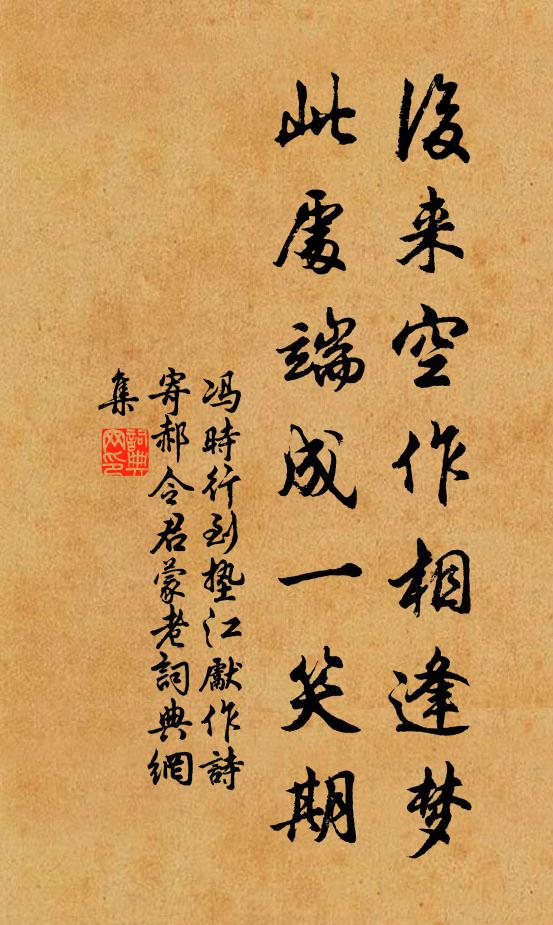 後来空作相逢梦
此處端成一笑期
冯時行到墊江獻作詩
寄郝令君蒙老詞典網
集
詞典网印